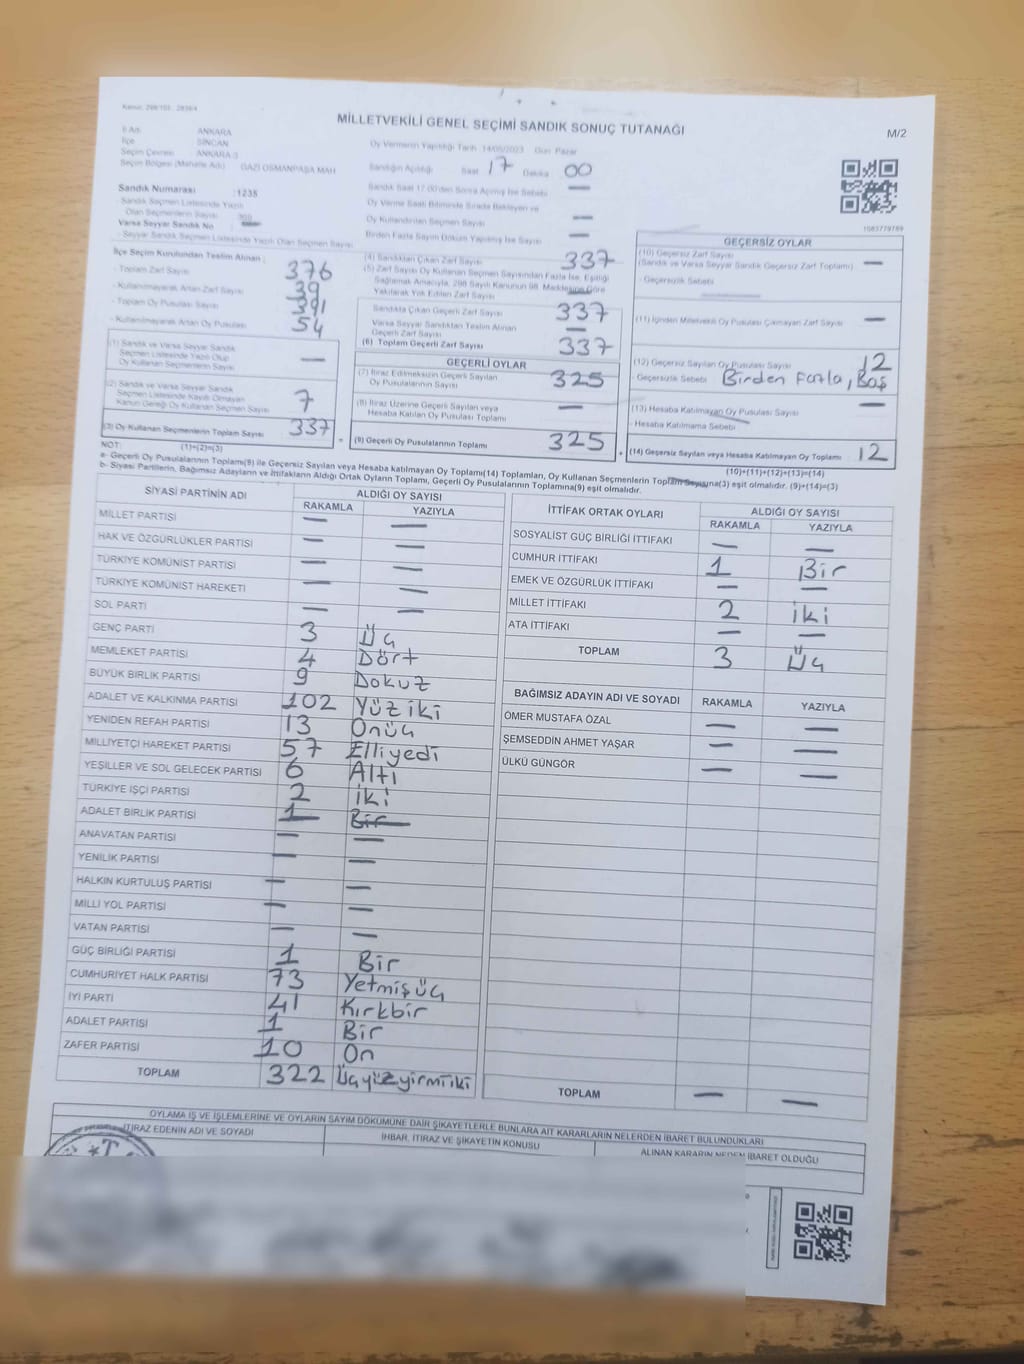 Kanun: 298/105 - 2839/4
MİLLETVEKİLİ GENEL SEÇİMİ SANDIK SONUÇ TUTANAĞI
M/2
İl Adı ANKARA
İlçe SİNCAN
Seçim Çevresi ANKARA-3
Seçim Bölgesi (Mahalle Adı) GAZİ OSMANPAŞA MAH
Sandık Numarası :1235
- Sandık Seçmen Listesinde Yazılı
Olan Seçmenlerin Sayısı
Varsa Seyyar Sandık No
- Seyyar Sandık Seçmen Listesinde Yazılı Olan Seçmen Sayısı
Oy Vermenin Yapıldığı Tarih 14/05/2023 Gün Pazar
Sandığın Açıldığı Saat 17 Dakika 00
Sandık Saat 17.00'den Sonra Açılmış İse Sebebi —
Oy Verme Saati Bitiminde Sırada Bekleyen ve
Oy Kullandırılan Seçmen Sayısı —
Birden Fazla Sayım Döküm Yapılmış İse Sayısı —
1083779789
İlçe Seçim Kurulundan Teslim Alınan :
- Toplam Zarf Sayısı 376
- Kullanılmayarak Artan Zarf Sayısı 39
- Toplam Oy Pusulası Sayısı 391
- Kullanılmayarak Artan Oy Pusulası 54
(1) Sandık ve Varsa Seyyar Sandık
Seçmen Listesinde Yazılı Olup
Oy Kullanan Seçmenlerin Sayısı —
(2) Sandık ve Varsa Seyyar Sandık
Seçmen Listesinde Kayıtlı Olmayan
Kanun Gereği Oy Kullanan Seçmen Sayısı 7
(3) Oy Kullanan Seçmenlerin Toplam Sayısı 337
(4) Sandıktan Çıkan Zarf Sayısı 337
(5) Zarf Sayısı Oy Kullanan Seçmen Sayısından Fazla İse, Eşitliği
Sağlamak Amacıyla, 298 Sayılı Kanunun 98. Maddesine Göre
Yakılarak Yok Edilen Zarf Sayısı
Sandıkta Çıkan Geçerli Zarf Sayısı 337
Varsa Seyyar Sandıktan Teslim Alınan
Geçerli Zarf Sayısı —
(6) Toplam Geçerli Zarf Sayısı 337
GEÇERLİ OYLAR
(7) İtiraz Edilmeksizin Geçerli Sayılan
Oy Pusulalarının Sayısı 325
(8) İtiraz Üzerine Geçerli Sayılan veya
Hesaba Katılan Oy Pusulası Toplamı —
(9) Geçerli Oy Pusulalarının Toplamı 325
GEÇERSİZ OYLAR
(10) Geçersiz Zarf Sayısı
(Sandık ve Varsa Seyyar Sandık Geçersiz Zarf Toplamı) —
- Geçersizlik Sebebi
(11) İçinden Milletvekili Oy Pusulası Çıkmayan Zarf Sayısı —
(12) Geçersiz Sayılan Oy Pusulası Sayısı 12
- Geçersizlik Sebebi Birden Fazla, Boş
(13) Hesaba Katılmayan Oy Pusulası Sayısı —
- Hesaba Katılmama Sebebi
(14) Geçersiz Sayılan veya Hesaba Katılmayan Oy Toplamı 12
NOT: (1)+(2)=(3)
(10)+(11)+(12)+(13)=(14)
a- Geçerli Oy Pusulalarının Toplamı(9) ile Geçersiz Sayılan veya Hesaba katılmayan Oy Toplamı(14) Toplamları, Oy Kullanan Seçmenlerin Toplam Sayısına(3) eşit olmalıdır. (9)+(14)=(3)
b- Siyasi Partilerin, Bağımsız Adayların ve İttifakların Aldığı Ortak Oyların Toplamı, Geçerli Oy Pusulalarının Toplamına(9) eşit olmalıdır.
SİYASİ PARTİNİN ADI ALDIĞI OY SAYISI
RAKAMLA YAZIYLA
MİLLET PARTİSİ — —
HAK VE ÖZGÜRLÜKLER PARTİSİ — —
TÜRKİYE KOMÜNİST PARTİSİ — —
TÜRKİYE KOMÜNİST HAREKETİ — —
SOL PARTİ — —
GENÇ PARTİ 3 Üç
MEMLEKET PARTİSİ 4 Dört
BÜYÜK BİRLİK PARTİSİ 9 Dokuz
ADALET VE KALKINMA PARTİSİ 102 Yüziki
YENİDEN REFAH PARTİSİ 13 Onüç
MİLLİYETÇİ HAREKET PARTİSİ 57 Elliyedi
YEŞİLLER VE SOL GELECEK PARTİSİ 6 Altı
TÜRKİYE İŞÇİ PARTİSİ 2 iki
ADALET BİRLİK PARTİSİ 1 Bir
ANAVATAN PARTİSİ — —
YENİLİK PARTİSİ — —
HALKIN KURTULUŞ PARTİSİ — —
MİLLİ YOL PARTİSİ — —
VATAN PARTİSİ — —
GÜÇ BİRLİĞİ PARTİSİ 1 Bir
CUMHURİYET HALK PARTİSİ 73 Yetmişüç
İYİ PARTİ 41 Kırkbir
ADALET PARTİSİ 1 Bir
ZAFER PARTİSİ 10 On
TOPLAM 322 Üçyüzyirmiiki
İTTİFAK ORTAK OYLARI ALDIĞI OY SAYISI
RAKAMLA YAZIYLA
SOSYALİST GÜÇ BİRLİĞİ İTTİFAKI — —
CUMHUR İTTİFAKI 1 Bir
EMEK VE ÖZGÜRLÜK İTTİFAKI — —
MİLLET İTTİFAKI 2 iki
ATA İTTİFAKI — —
TOPLAM 3 Üç
BAĞIMSIZ ADAYIN ADI VE SOYADI RAKAMLA YAZIYLA
ÖMER MUSTAFA ÖZAL — —
ŞEMSEDDİN AHMET YAŞAR — —
ÜLKÜ GÜNGÖR — —
TOPLAM — —
OYLAMA İŞ VE İŞLEMLERİNE VE OYLARIN SAYIM DÖKÜMÜNE DAİR ŞİKAYETLERLE BUNLARA AİT KARARLARIN NELERDEN İBARET BULUNDUKLARI
İTİRAZ EDENİN ADI VE SOYADI
İHBAR, İTİRAZ VE ŞİKAYETİN KONUSU
ALINAN KARARIN NEDEN İBARET OLDUĞU